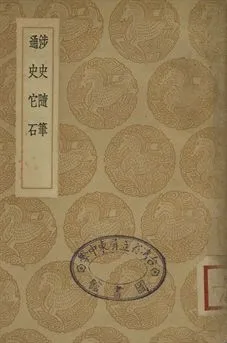 涉史隨筆
通史它石
圖書館